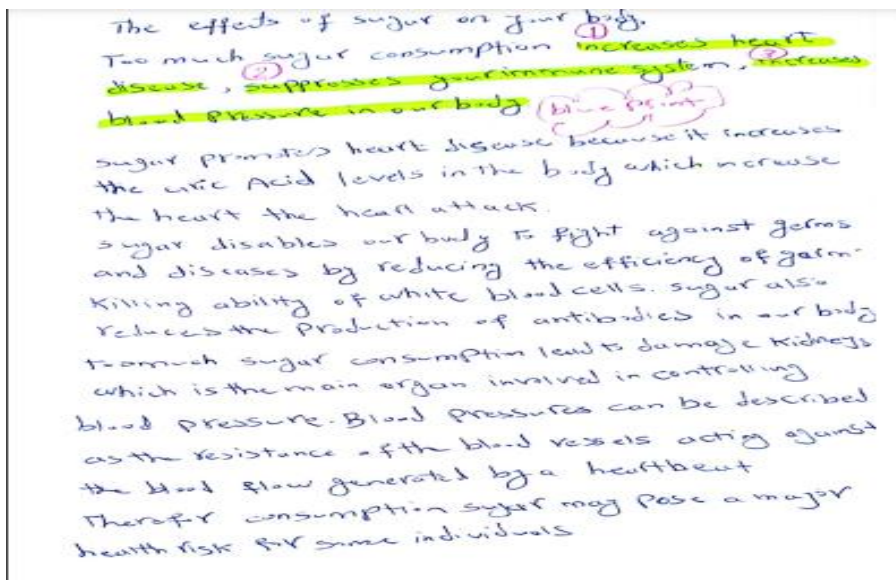 The effects of sugar on your body.
Too much sugar consumption ① increases heart
disease, ② suppresses your immune system, ③ increases
blood pressure in our body (blue print)
sugar promotes heart disease because it increases
the uric Acid levels in the body which ncrease
the heart the heart attack.
sugar disables our body to fight against germs
and diseases by reducing the efficiency of germ-
killing ability of white blood cells. sugar also
reduces the production of antibodies in our body
too much sugar consumption lead to damage kidneys
which is the main organ involved in controlling
blood pressure. Blood pressures can be described
as the resistance of th blood vessels acting against
the blood flow generated by a heartbeat
Therefor consumption sugar may pose a major
health risk for some individuals